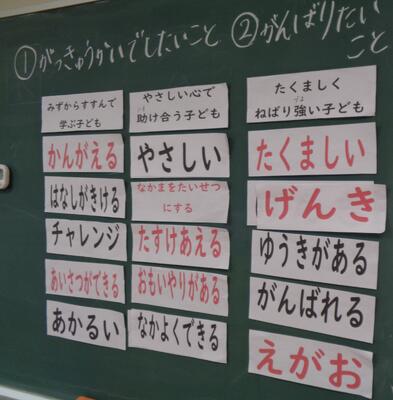 ①がっきゅうかいでしたいこと
②がんばりたい
こと
みずからすすんで
学ぶ子ども
かんがえる
はなしがきける
チャレンジ
あいさつができる
あかるい
やさしい心で
助け合う子ども
やさしい
なかまをたいせつ
にする
たすけあえる
おもいやりがある
なかよくできる
たくましく
ねばり強い子ども
たくましい
げんき
ゆうきがある
がんばれる
えがお